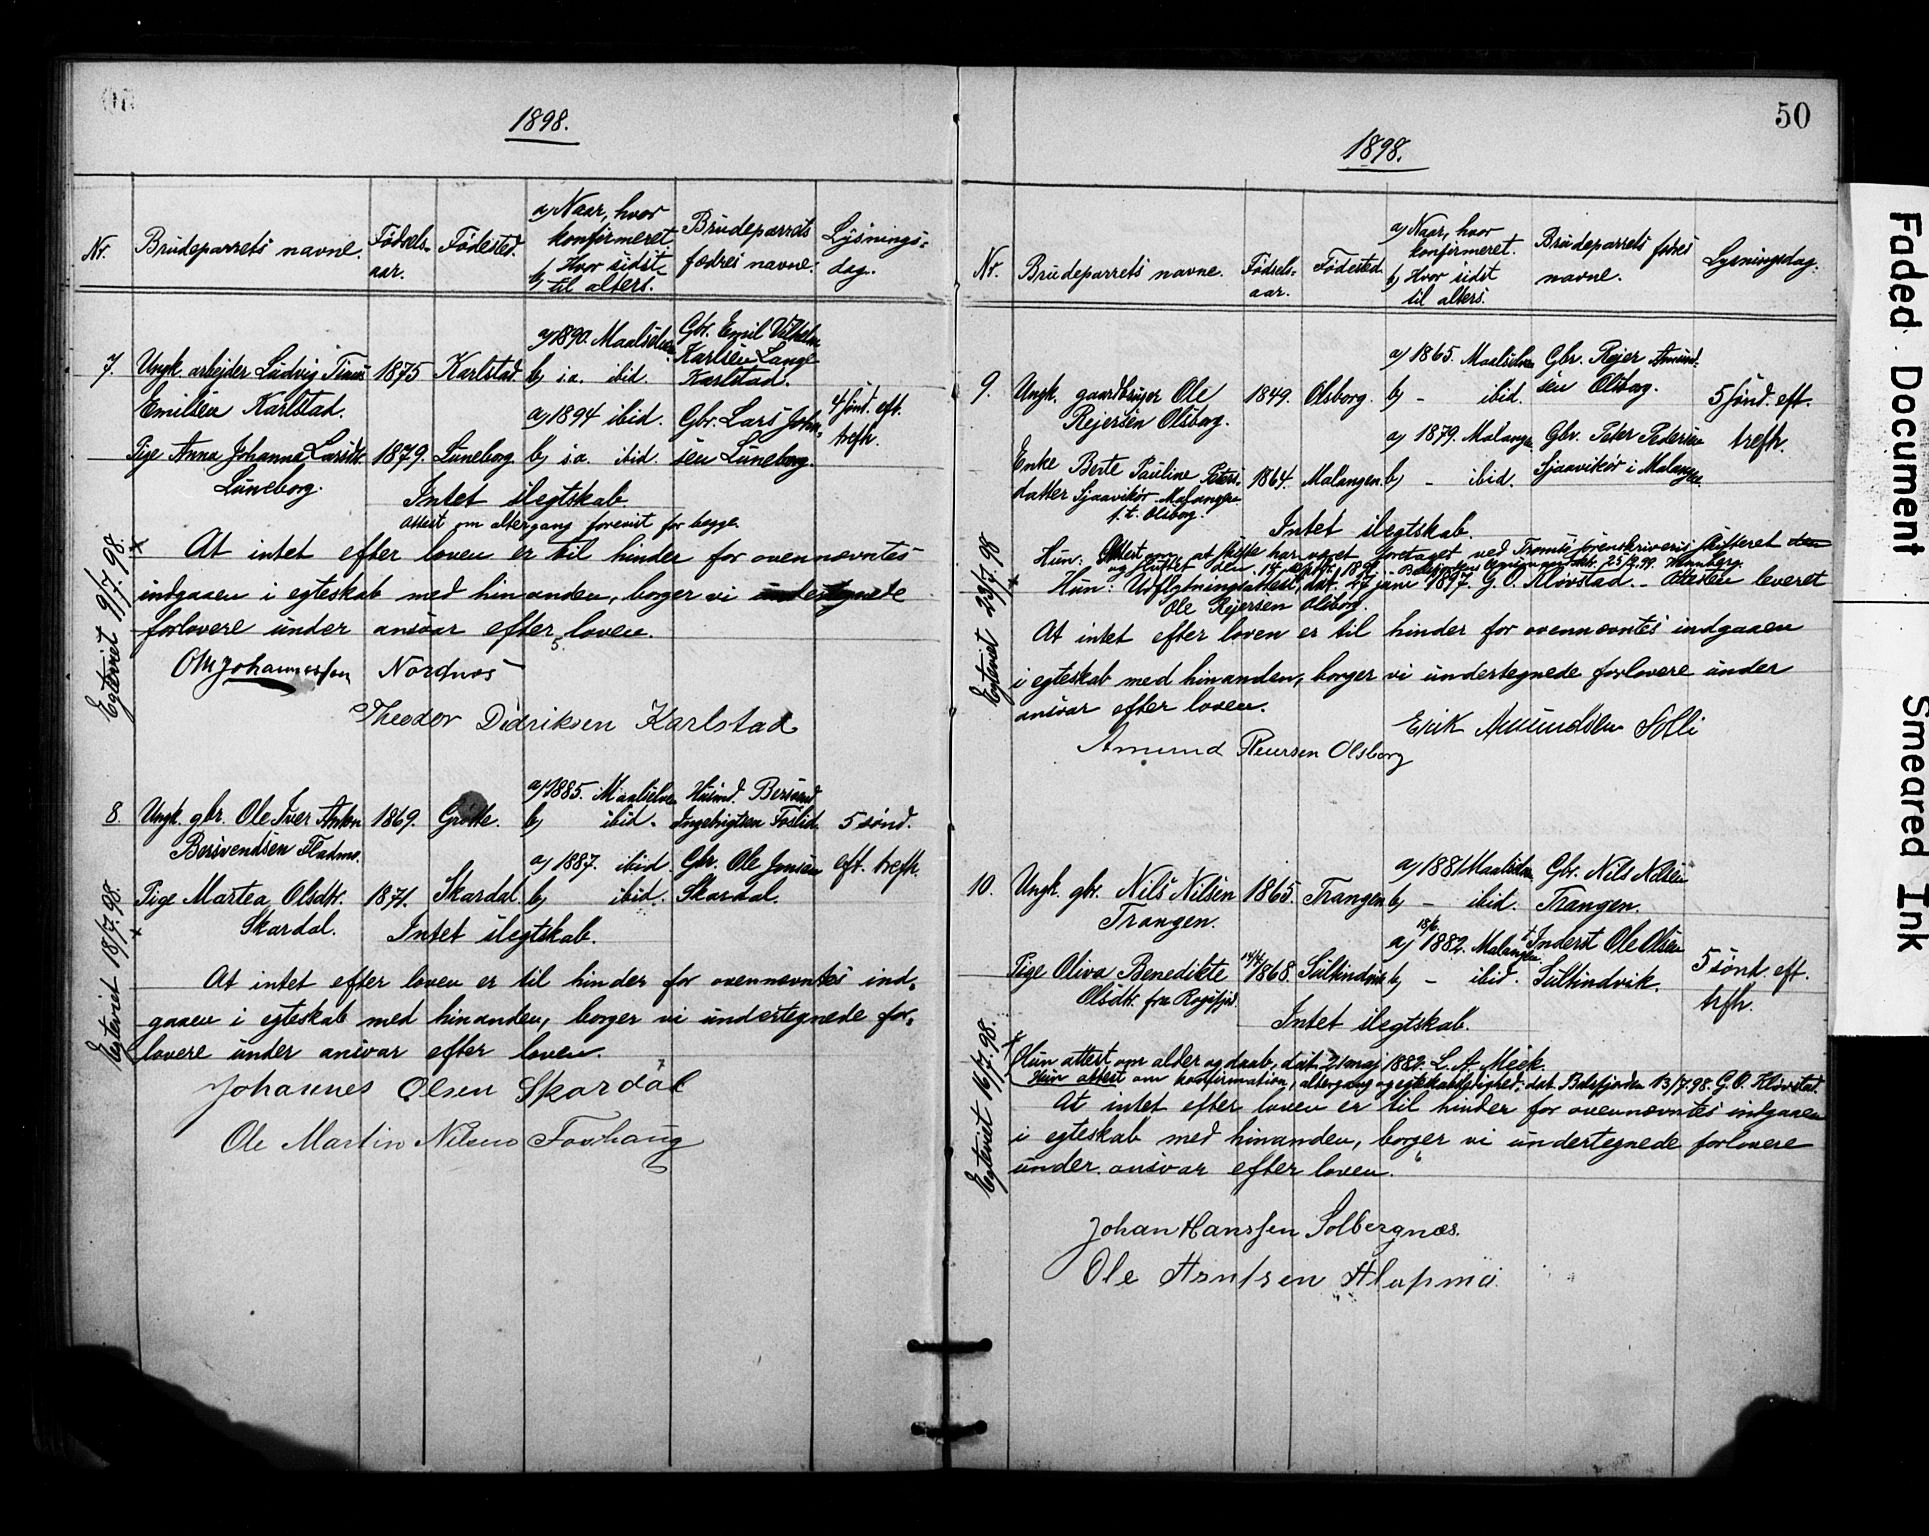 1898.
Nr. Brudeparrets navne. Fødsels-aar. Fødested. a) Naar, hvor konfirmeret. b) Hvor sidst til alters. Brudeparrets fædres navne. Lysnings-dag.
7. Ungk. arbejder Ludvig 1875 Karlstad a) 1890. Maalselven b) i.a. ibid. Gbr. Emil Vilhelm Karlsen Lange Karlstad.
Emilsen Karlstad.
4 sønd. eft. trefh.
Pige Anna Johanna Larsdtr. 1879. Luneborg a) 1894 ibid. b) i.a. ibid. Gbr. Lars Johnsen Luneborg.
Luneborg.
Intet slegtskab.
Attest om altergang forevist for begge.
At intet efter loven er til hinder for ovennævntes
indgaaen i egteskab med hinanden, borger vi undertegnede
forlovere under ansvar efter loven.
Egteviet 9/7. 98.
Ole Johannessen Nordnes
Theodor Didriksen Karlstad
8. Ungk. gbr. Ole Iver Anton 1869. Grøtte. a) 1885. Maalselven b) ibid. Husmd. Bersvend Ingebrigtsen Foslid. 5 sønd.
Bersvendsen Fladmo.
eft. trefh.
Pige Martea Olsdtr. 1871. Skardal a) 1887. ibid. b) ibid. Gbr. Ole Jensen Skardal.
Skardal.
Intet slegtskab.
At intet efter loven er til hinder for ovennævntes ind-
gaaen i egteskab med hinanden, borger vi undertegnede for-
lovere under ansvar efter loven.
Egteviet 18/7. 98.
Johannes Olsen Skardal
Ole Martin Nilsen Fosshaug
50
1898.
Nr. Brudeparrets navne. Fødsels-aar. Fødested. a) Naar, hvor konfirmeret. b) Hvor sidst til alters. Brudeparrets fædres navne. Lysningsdag.
9. Ungk. gaardbruger Ole 1849. Olsborg. a) 1865. Maalselven b) - ibid. Gbr. Rejer Amundsen Olsborg. 5 sønd. eft.
Rejersen Olsborg.
trefh.
Enke Berte Pauline Peders- 1864. Malangen. a) 1879. Malangen b) - ibid. Gbr. Peter Pedersen Sjaavikør i Malangen.
datter Sjaavikør Malangen
f. t. Olsborg.
Intet slegtskab.
Hun: Attest om, at skifte har været foretaget ved Tromsø sorenskriveri skifteret den
og sluttet den 14 septbr. 1891.
Hun: Udflytningsattest, dat. 27 juni 1897. G. O. Kløvstad. - Attesten leveret
Ole Rejersen Olsborg.
At intet efter loven er til hinder for ovennævntes indgaaen
i egteskab med hinanden, borger vi undertegnede forlovere under
ansvar efter loven.
Egteviet 23/7. 98
Erik Amundsen Solli
Amund Reiersen Olsborg
10. Ungk. gbr. Nils Nilsen 1865. Trangen a) 1881 Maalselven b) - ibid. Gbr. Nils Nilsen Trangen.
Trangen.
Pige Oliva Benedikte 1868. Sultindvik a) 18/6. 1882. Malangen b) - ibid. Inderst Ole Olsen Sultindvik. 5 sønd. eft.
Olsdtr. fra Rossfjord.
trfh.
Intet slegtskab.
Hun attest om alder og daab, dat. 21 maj 1882. L. A. Meek.
Hun attest om konfirmation, altergang og egteskabsledighed, dat. Balsfjorden 13/7. 98. G. O. Kløvstad.
At intet efter loven er til hinder for ovennævntes indgaaen
i egteskab med hinanden, borger vi undertegnede forlovere
under ansvar efter loven.
Egteviet 16/7. 98.
Johan Hanssen Solbergnæs.
Ole Arntsen Alapmo
Faded Document
Smeared Ink